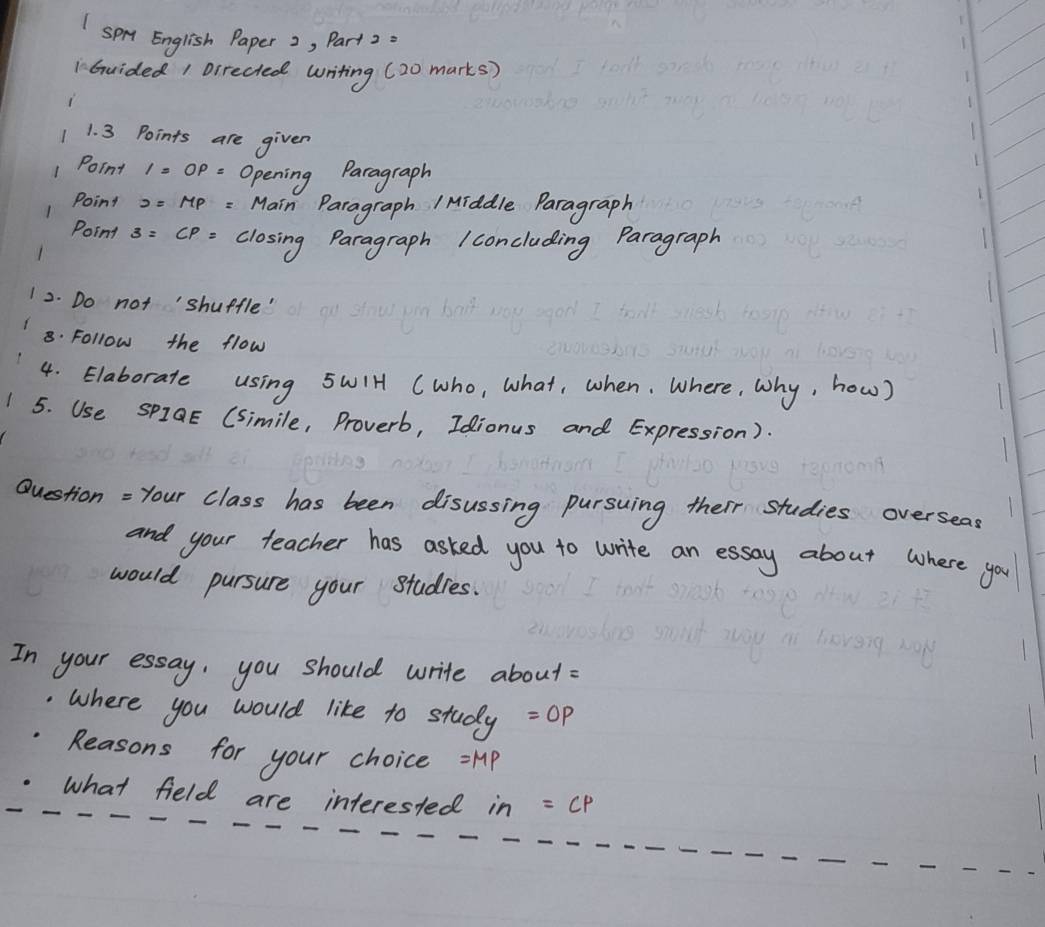 SPM English Paper 2, Part 2 =
Guided / Directed Writing (20 marks)
1. 3 Points are given
Point 1 = OP = Opening Paragraph
Point 2 = MP = Main Paragraph / Middle Paragraph
Point 3 = CP = Closing Paragraph / Concluding Paragraph
2. Do not 'shuffle'
3. Follow the flow
4. Elaborate using 5W1H (Who, What, When, Where, Why, how)
5. Use SPIQE (Simile, Proverb, Idionus and Expression).
Question = Your class has been disussing pursuing their studies overseas
and your teacher has asked you to write an essay about where you
would pursure your studies.
In your essay, you should write about =
• Where you would like to study = OP
• Reasons for your choice = MP
• What field are interested in = CP